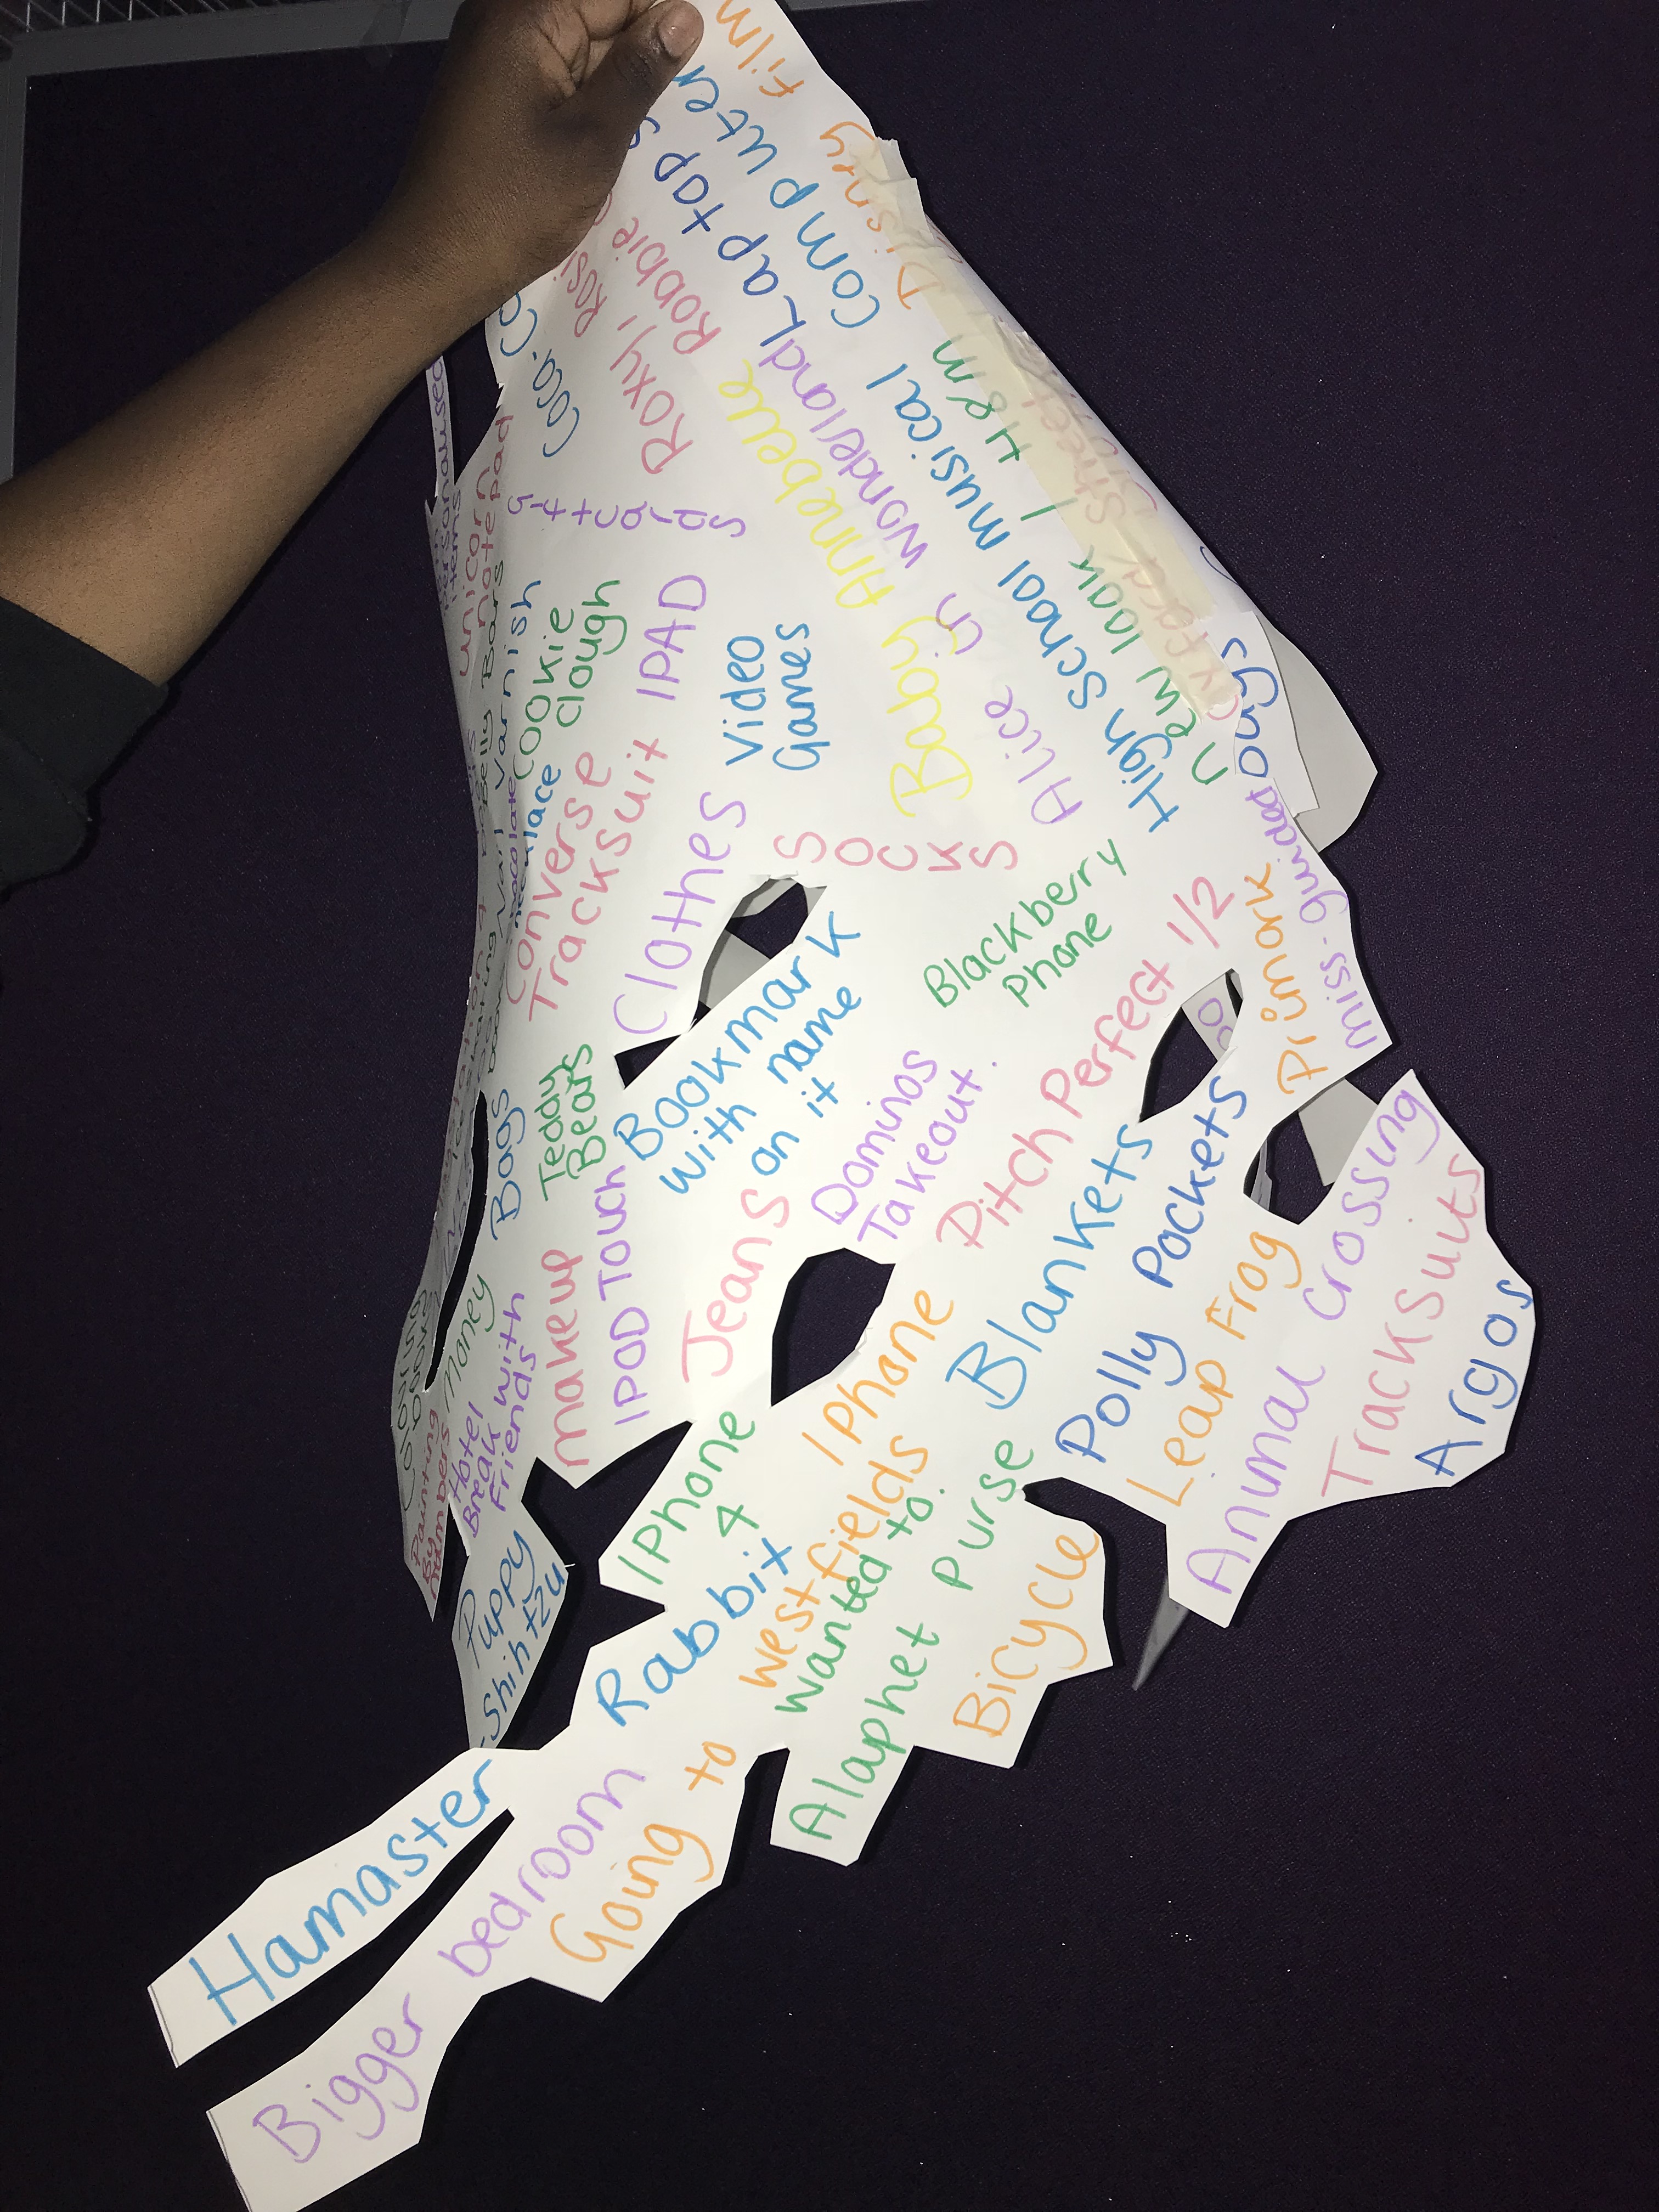 film
Disney
computer
Laptop
Robbie
Roxy,
Rosie
Coca-Co
H&m
High School musical 1
Alice in wonderland
Baby Annebelle
new look /
guitars
unicorn
note pad
IPAD
Video
Games
Cookie
dough
Converse
Tracksuit
Clothes
SOCKS
necklace
nail varnish
Blackberry
Phone
Primark
miss-guided
Pitch Perfect 1/2
Bookmark
with name
on it
Dominos
Takeout.
Teddy
Bears
Bags
IPOD Touch
makeup
Jeans
Money
Hotel
Break with
Friends
Colouring
books
Painting
By
numbers
Puppy
-Shih tzu
IPhone
4
Rabbit
IPhone
Blankets
Polly Pockets
Leap Frog
Animal Crossing
Tracksuits
Argos
Going to westfields
wanted to.
Alaphet Purse
Bicycle
Hamaster
Bigger bedroom